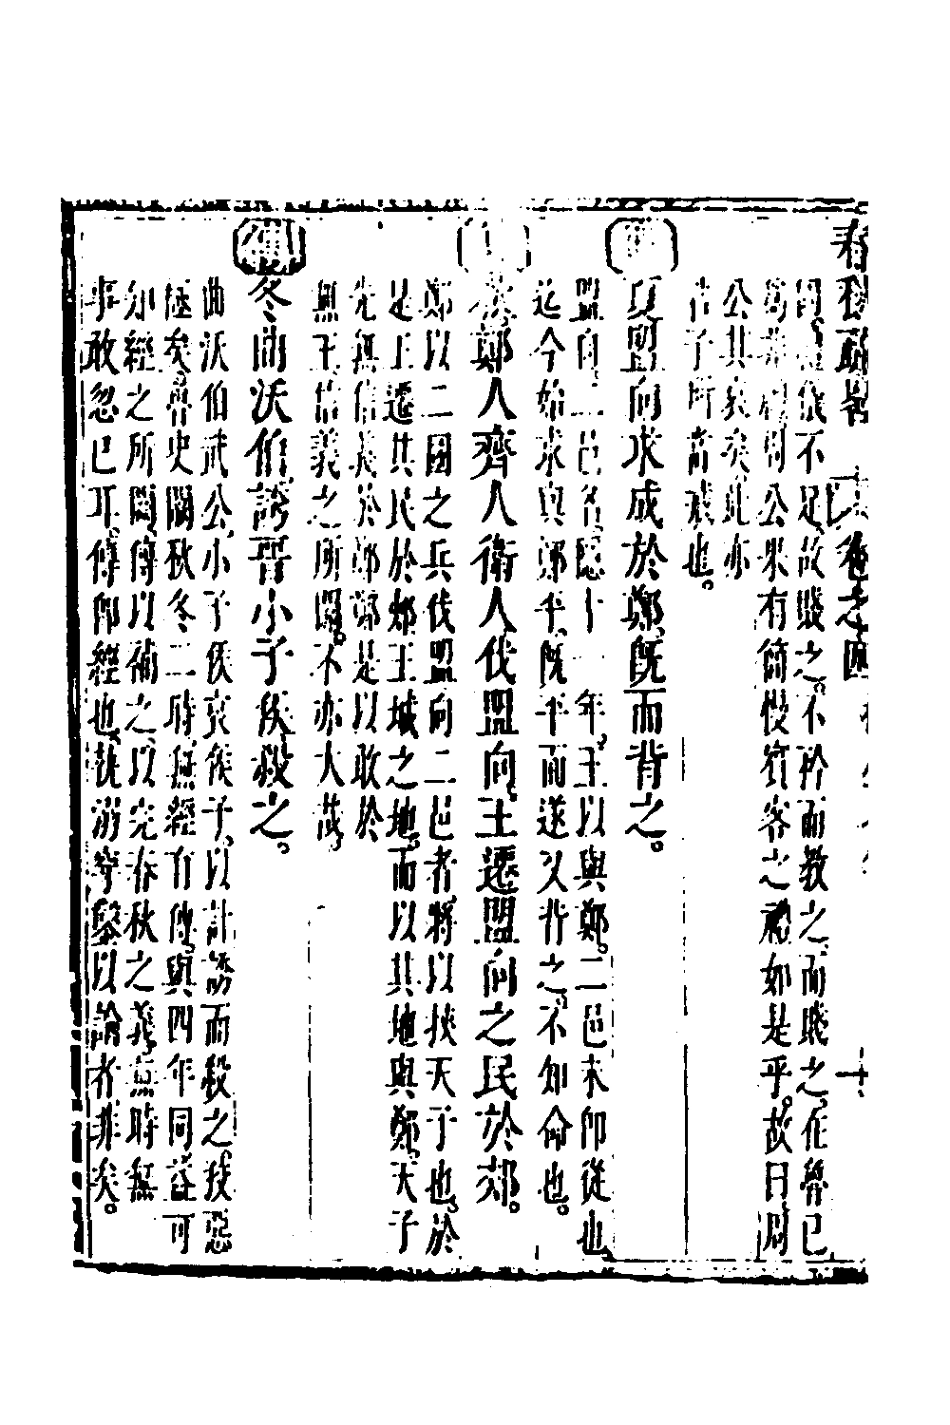 春秋 卷之四 十
不足故賤之不矜而教之而賤之在魯已
周公果有簡慢賓客之禮如是乎故曰周
公其衰矣此亦
君子所當戒也
傳
夏盟向求成於鄭既而背之
盟向二邑名隱十一年王以與鄭二邑未即從也
迄今始求與鄭平既平而遂又背之不知命也
秋鄭人齊人衛人伐盟向王遷盟向之民於郟
鄭以二國之兵伐盟向二邑者將以挾天子也於
是王遷其民於郟王城之地而以其地與鄭天子
先無信義於鄭鄭是以敢於
無王信義之所關不亦大哉
傳
冬曲沃伯誘晉小子侯殺之
曲沃伯武公小子侯哀侯子以計誘而殺之其惡
極矣魯史闕秋冬二時無經有傳與四年同益可
知經之所闕傳以補之以完春秋之義無時無
事敢忽已耳傳即經也執泥穿鑿以論者非矣